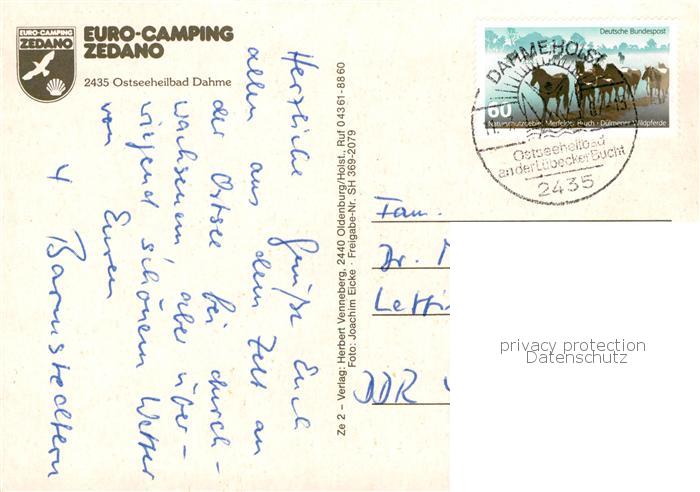 EURO-CAMPING
ZEDANO
EURO-CAMPING
ZEDANO
2435 Ostseeheilbad Dahme
Herzliche Grüße Euch
allen aus dem Zelt an
der Ostsee bei durch-
wachsenem aber über-
wiegend schönem Wetter
von Euren
4 Barmstedtern
Ze 2 – Verlag: Herbert Venneberg, 2440 Oldenburg/Holst., Ruf 04361-8860
Foto: Joachim Eicke · Freigabe-Nr. SH 369-2079
Deutsche Bundespost
60
Naturschutzgebiet Merfelder Bruch · Dülmener Wildpferde
DAHME HOLST
Ostseeheilbad
an der Lübecker Bucht
2435
Fam.
Dr.
DDR
privacy protection
Datenschutz